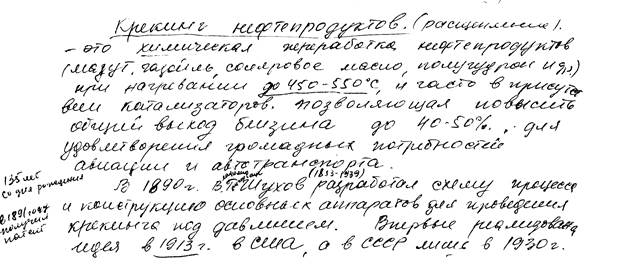 Крекинг нефтепродуктов. (расщепление).
- это химическая переработка нефтепродуктов
(мазут, газойль, соляровое масло, полугудрон и др)
при нагревании до 450-550°С, и часто в присутст
вии катализаторов. позволяющая повысить
общий выход бензина до 40-50%, для
удовлетворения громадных потребностей
авиации и автотранспорта.
135 лет
со дня рождения
(1853-1939)
В 1890г. В.Г. Шухов разработал схему процесса
и конструкцию основных аппаратов для проведения
крекинга под давлением. Впервые реализована
идея в 1913г. в США, а в СССР лишь в 1930г.
в 1891г
получил
патент